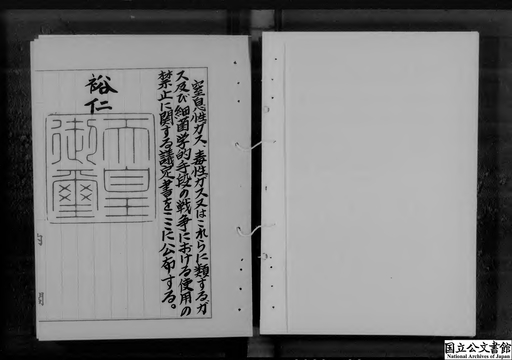 窒息性ガス、毒性ガス又はこれらに類するガ
ス及び細菌学的手段の戦争における使用の
禁止に関する議定書をここに公布する。
裕仁
天皇
御璽
国立公文書館
National Archives of Japan